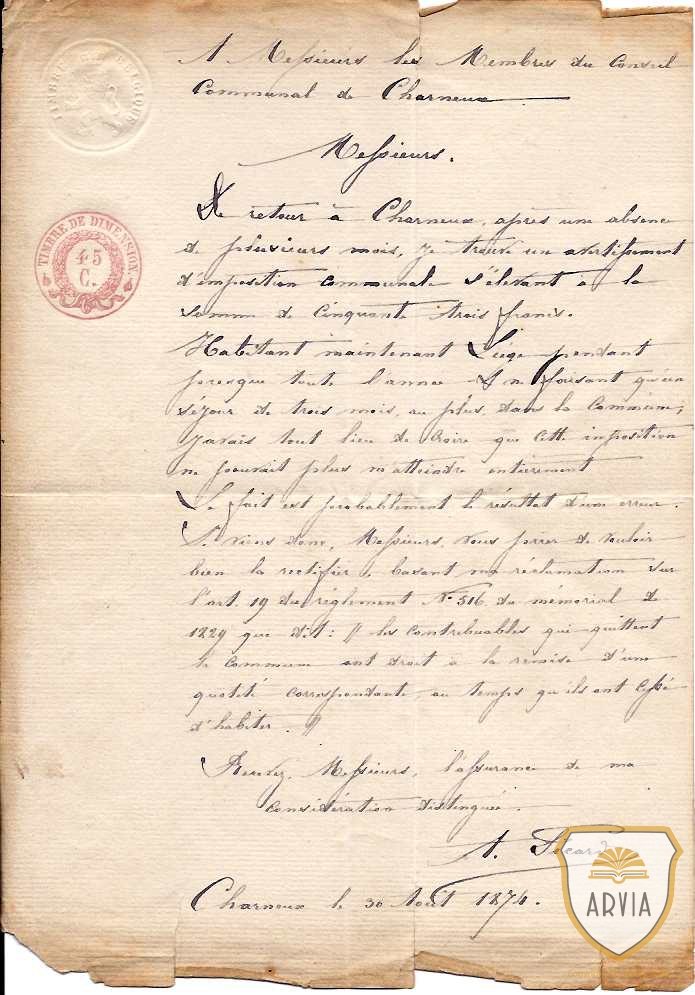 TIMBRE BELGIQUE
A Messieurs les Membres du Conseil
Communal de Charneux
Messieurs.
TIMBRE DE DIMENSION.
45
C.
De retour à Charneux, après une absence
de plusieurs mois, je trouve un avertissement
d'imposition communale s'élevant à la
somme de Cinquante trois francs.
Habitant maintenant Liège pendant
presque toute l'année & ne faisant qu'un
séjour de trois mois, au plus, dans la Commune,
j'avais tout lieu de croire que cette imposition
ne pouvait plus m'atteindre entièrement
Le fait est probablement le résultat d'une erreur.
Je viens donc, Messieurs, vous prier de vouloir
bien la rectifier, basant ma réclamation sur
l'art. 19 du réglement N° 516 du mémorial de
1829 que dit: // les contribuables qui quittent
la commune ont droit à la remise d'une
quotité correspondante, au temps qu'ils ont cessé
d'habiter. //
Recevez, Messieurs, l'assurance de ma
considération distinguée.
A.
Charneux le 30 Août 1874.
ARVIA